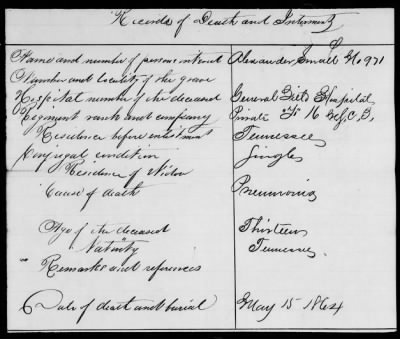 Records of Death and Interment
Name and number of person interred Alexander Small No 971
Number and locality of the grave
Hospital number of the deceased General Field Hospital
Regiment rank and company Private 16 C.
Residence before enlistment Tennessee
Conjugal condition Single
Residence of Widow
Cause of death Pneumonia
Age of the deceased Thirteen
Nativity Tennessee
Remarks and references
Date of death and burial May 15 1864